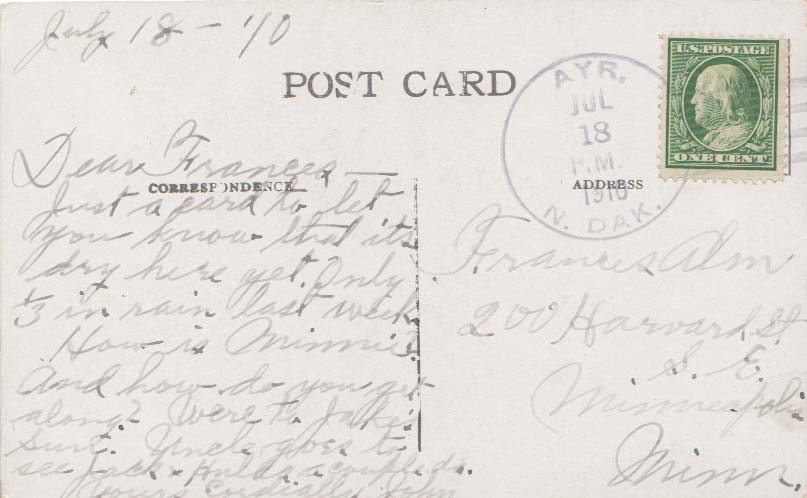 July 18 - '10
POST CARD
U.S. POSTAGE
ONE CENT
AYR.
JUL
18
P.M.
1910
N. DAK.
CORRESPONDENCE
ADDRESS
Dear Frances —
Just a card to let
you know that its
dry here yet. Only
1/3 in rain last week
How is Minnie?
And how do you get
along? Were to Jake's
Sun. Uncle goes to
see Jack & Hulda a couple ds.
Yours Cordially John
Frances Alm
200 Harvard St
S. E.
Minneapolis
Minn.